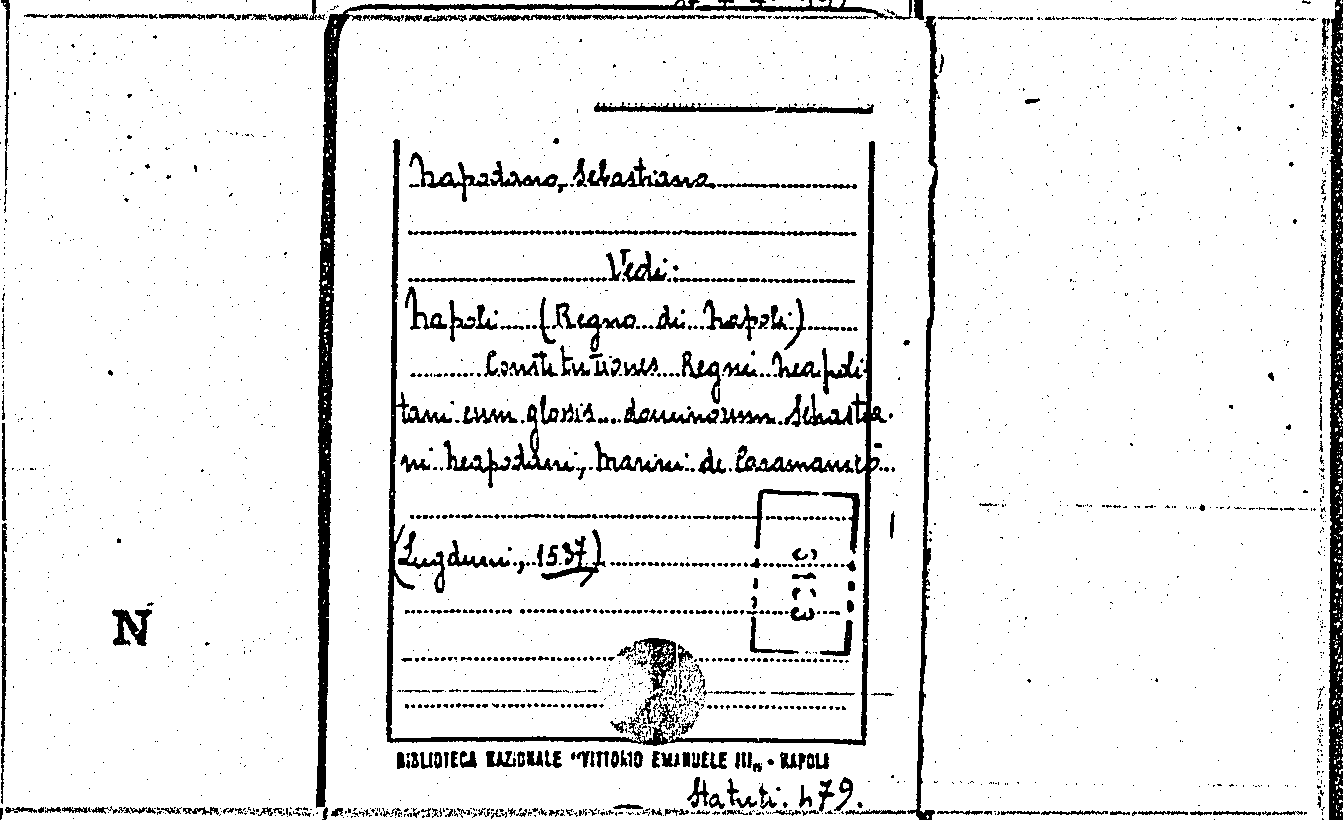 Napodano, Sebastiano
Vedi:
Napoli (Regno di Napoli)
Constitutiones Regni Neapoli-
tani cum glossis... dominorum Sebastia-
ni Neapodani, Marini de Caramanico...
(Lugduni, 1537)
N
BIBLIOTECA NAZIONALE "VITTORIO EMANUELE III„ - NAPOLI
Statuti. 479.